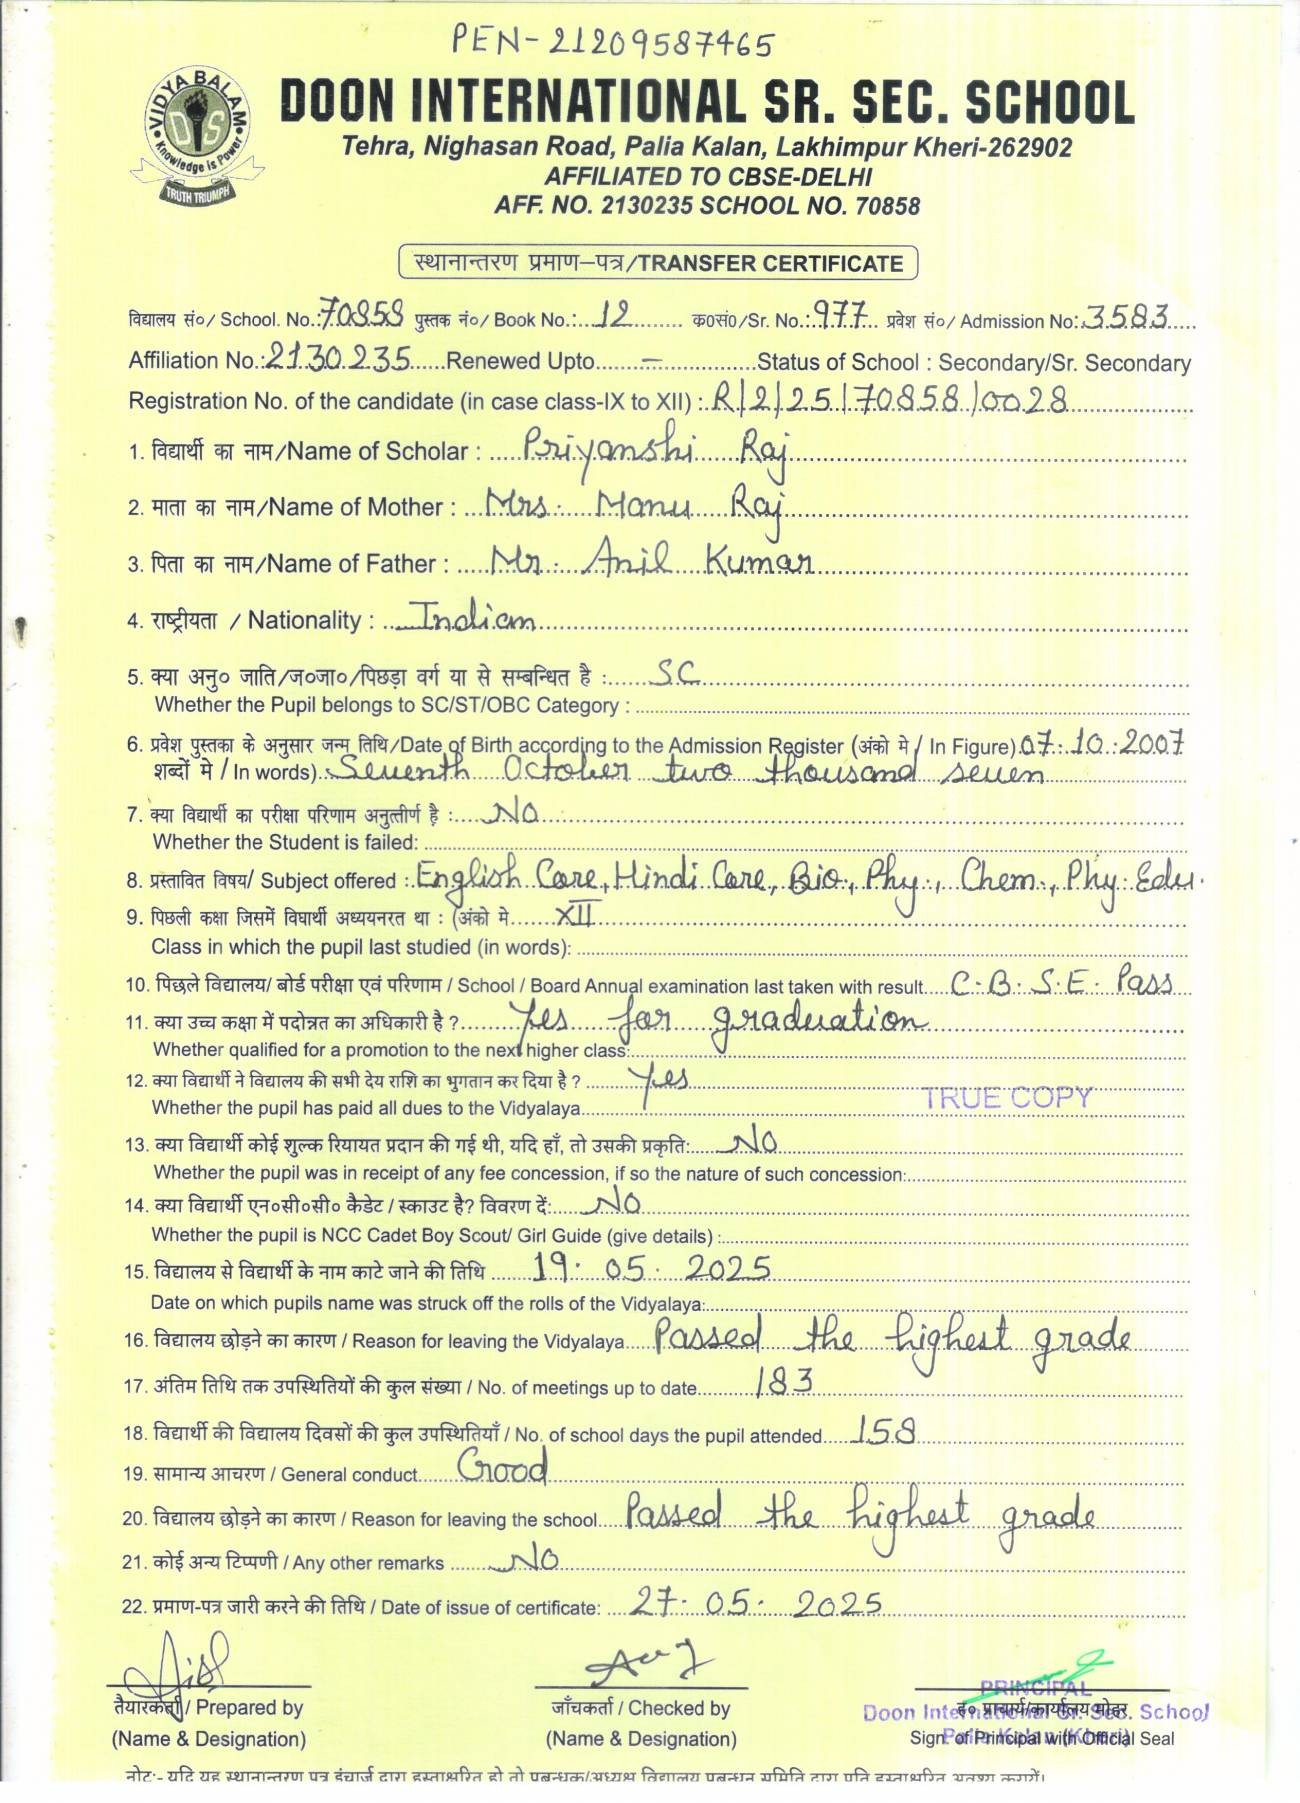 PEN-21209587465
VIDYA BALAM
DIS
Knowledge is Power
TRUTH TRIUMPH
DOON INTERNATIONAL SR. SEC. SCHOOL
Tehra, Nighasan Road, Palia Kalan, Lakhimpur Kheri-262902
AFFILIATED TO CBSE-DELHI
AFF. NO. 2130235 SCHOOL NO. 70858
स्थानान्तरण प्रमाण–पत्र/TRANSFER CERTIFICATE
विद्यालय सं०/ School. No.: 70858 पुस्तक नं०/ Book No.: 12 क०सं०/Sr. No.: 977 प्रवेश सं०/ Admission No: 3583
Affiliation No.: 2130235 Renewed Upto – Status of School : Secondary/Sr. Secondary
Registration No. of the candidate (in case class-IX to XII) : R/2/25/70858/0028
1. विद्यार्थी का नाम/Name of Scholar : Priyanshi Raj
2. माता का नाम/Name of Mother : Mrs. Manu Raj
3. पिता का नाम/Name of Father : Mr. Anil Kumar
4. राष्ट्रीयता / Nationality : Indian
5. क्या अनु० जाति/ज०जा०/पिछड़ा वर्ग या से सम्बन्धित है : SC
Whether the Pupil belongs to SC/ST/OBC Category :
6. प्रवेश पुस्तका के अनुसार जन्म तिथि/Date of Birth according to the Admission Register (अंको मे / In Figure) 07.10.2007
शब्दों मे / In words) Seventh October two thousand seven
7. क्या विद्यार्थी का परीक्षा परिणाम अनुत्तीर्ण है : NO
Whether the Student is failed:
8. प्रस्तावित विषय/ Subject offered : English Core, Hindi Core, Bio., Phy., Chem., Phy. Edu.
9. पिछली कक्षा जिसमें विघार्थी अध्ययनरत था : (अंको मे XII
Class in which the pupil last studied (in words):
10. पिछले विद्यालय/ बोर्ड परीक्षा एवं परिणाम / School / Board Annual examination last taken with result C.B.S.E. Pass
11. क्या उच्च कक्षा में पदोन्नत का अधिकारी है ? Yes for graduation
Whether qualified for a promotion to the next higher class:
12. क्या विद्यार्थी ने विद्यालय की सभी देय राशि का भुगतान कर दिया है ? Yes
Whether the pupil has paid all dues to the Vidyalaya
TRUE COPY
13. क्या विद्यार्थी कोई शुल्क रियायत प्रदान की गई थी, यदि हाँ, तो उसकी प्रकृति: NO
Whether the pupil was in receipt of any fee concession, if so the nature of such concession:
14. क्या विद्यार्थी एन०सी०सी० कैडेट / स्काउट है? विवरण दें: NO
Whether the pupil is NCC Cadet Boy Scout/ Girl Guide (give details) :
15. विद्यालय से विद्यार्थी के नाम काटे जाने की तिथि 19. 05. 2025
Date on which pupils name was struck off the rolls of the Vidyalaya:
16. विद्यालय छोड़ने का कारण / Reason for leaving the Vidyalaya Passed the highest grade
17. अंतिम तिथि तक उपस्थितियों की कुल संख्या / No. of meetings up to date 183
18. विद्यार्थी की विद्यालय दिवसों की कुल उपस्थितियाँ / No. of school days the pupil attended 158
19. सामान्य आचरण / General conduct Good
20. विद्यालय छोड़ने का कारण / Reason for leaving the school Passed the highest grade
21. कोई अन्य टिप्पणी / Any other remarks NO
22. प्रमाण-पत्र जारी करने की तिथि / Date of issue of certificate: 27. 05. 2025
PRINCIPAL
Doon International Sr. Sec. School
Palia Kalan (Kheri)
तैयारकर्ता / Prepared by जाँचकर्ता / Checked by ह० प्राचार्य/कार्यालय मोहर
(Name & Designation) (Name & Designation) Sign. of Principal with Official Seal
नोट:- यदि यह स्थानान्तरण पत्र इंचार्ज द्वारा हस्ताक्षरित हो तो प्रबन्धक/अध्यक्ष विद्यालय प्रबन्धन समिति द्वारा प्रति हस्ताक्षरित अवश्य करायें।